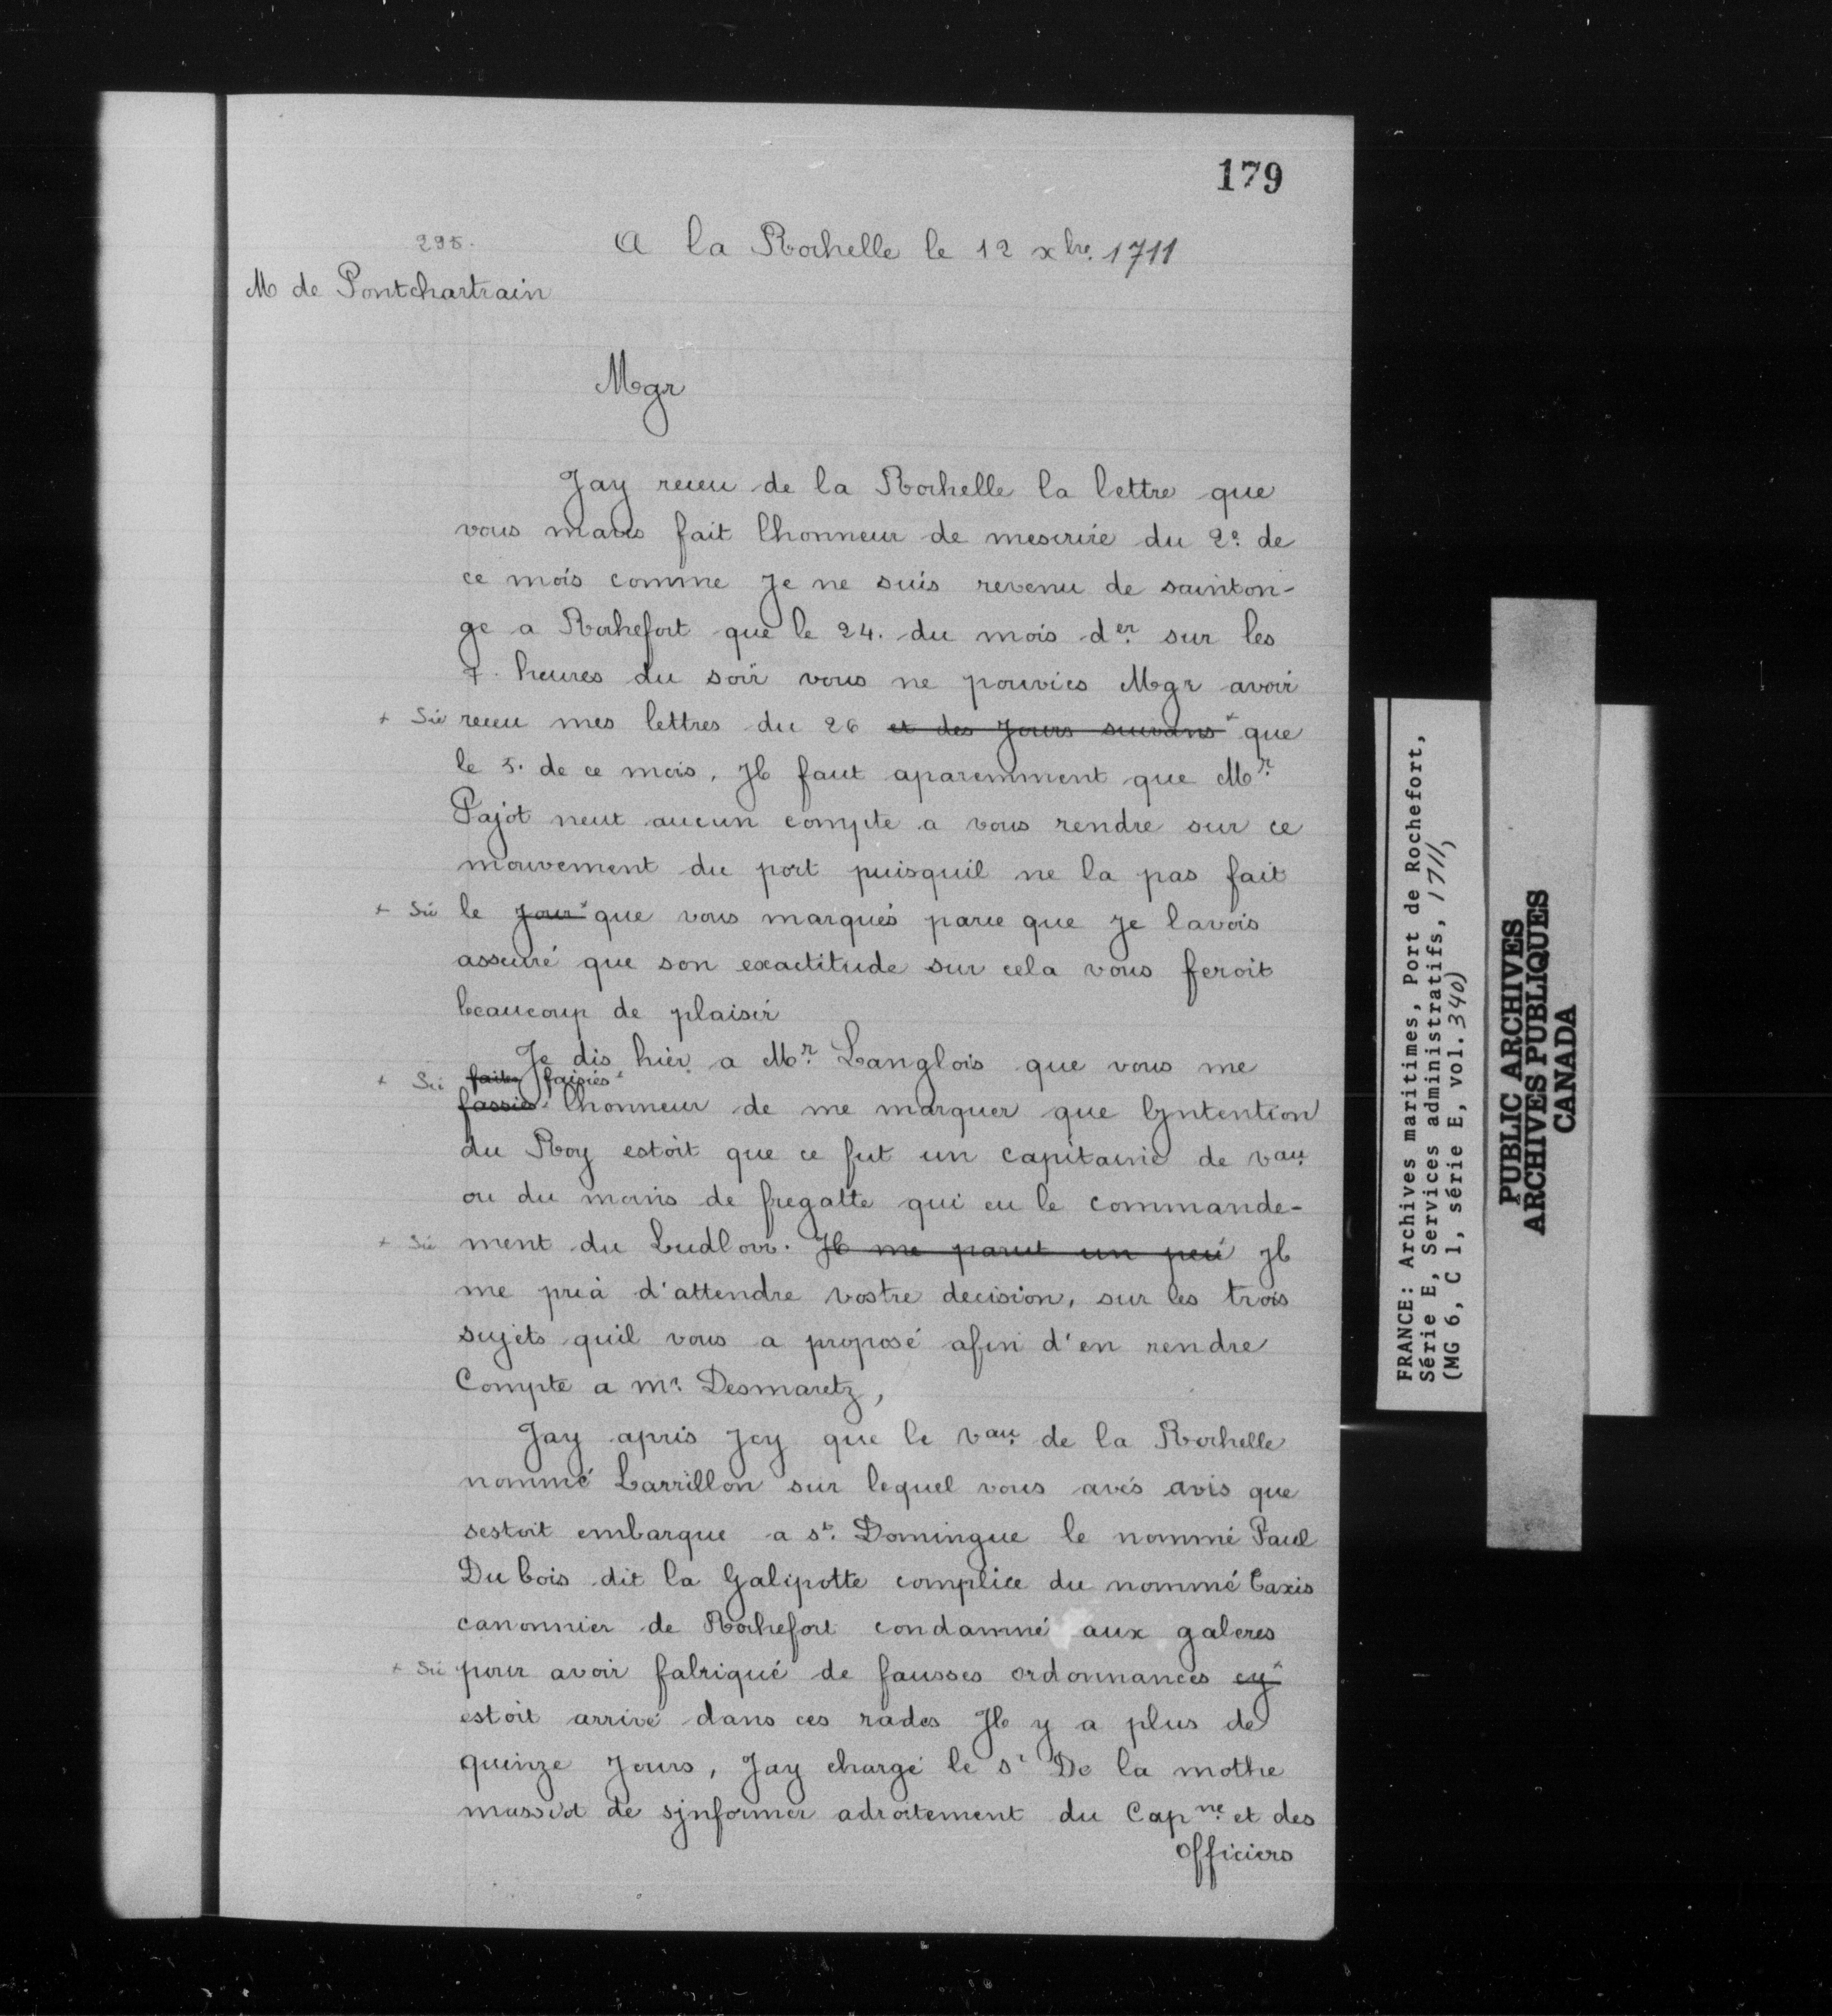 179
295.
A la Rochelle le 12 xbre. 1711
M de Pontchartrain
Mgr
Jay receu de la Rochelle la lettre que
vous maves fait lhonneur de mescrire du 2e. de
ce mois comme Je ne suis revenu de sainton-
ge a Rochefort que le 24. du mois der. sur les
7. heures du soir vous ne pouviés Mgr avoir
+ Sic receu mes lettres du 26 et des Jours suivans + que
le 5. de ce mois, Jl faut aparemment que Mr.
Pajot neut aucun compte a vous rendre sur ce
mouvement du port puisquil ne la pas fait
+ Sic le Jour + que vous marqués parce que Je lavois
asseuré que son exactitude sur cela vous feroit
beaucoup de plaisir
Je dis hier a Mr. Langlois que vous me
+ Sic faites faisiés +
fassiés lhonneur de me marquer que lyntention
du Roy estoit que ce fut un capitaine de vau.
ou du moins de fregatte qui eu le commande-
+ Sic ment du Ludlow. Jl me parut un peu Jl
me pria d'attendre vostre decision, sur les trois
sujets quil vous a proposé afin d'en rendre
Compte a mr. Desmaretz,
Jay apris Jcy que le vau. de la Rochelle
nommé Larrillon sur lequel vous avés avis que
sestoit embarque a st. Domingue le nommé Paul
Du bois dit la Galipotte complice du nommé Taxis
canonnier de Rochefort condamné aux galeres
+ Sic pour avoir fabriqué de fausses ordonnances cy +
estoit arrivé dans ces rades Jl y a plus de
quinze Jours, Jay chargé le sr De la mothe
massiot de sjnformer adroitement du Capne. et des
officiers
FRANCE: Archives maritimes, Port de Rochefort,
Série E, Services administratifs, 1711,
(MG 6, C 1, série E, vol. 340)
PUBLIC ARCHIVES
ARCHIVES PUBLIQUES
CANADA